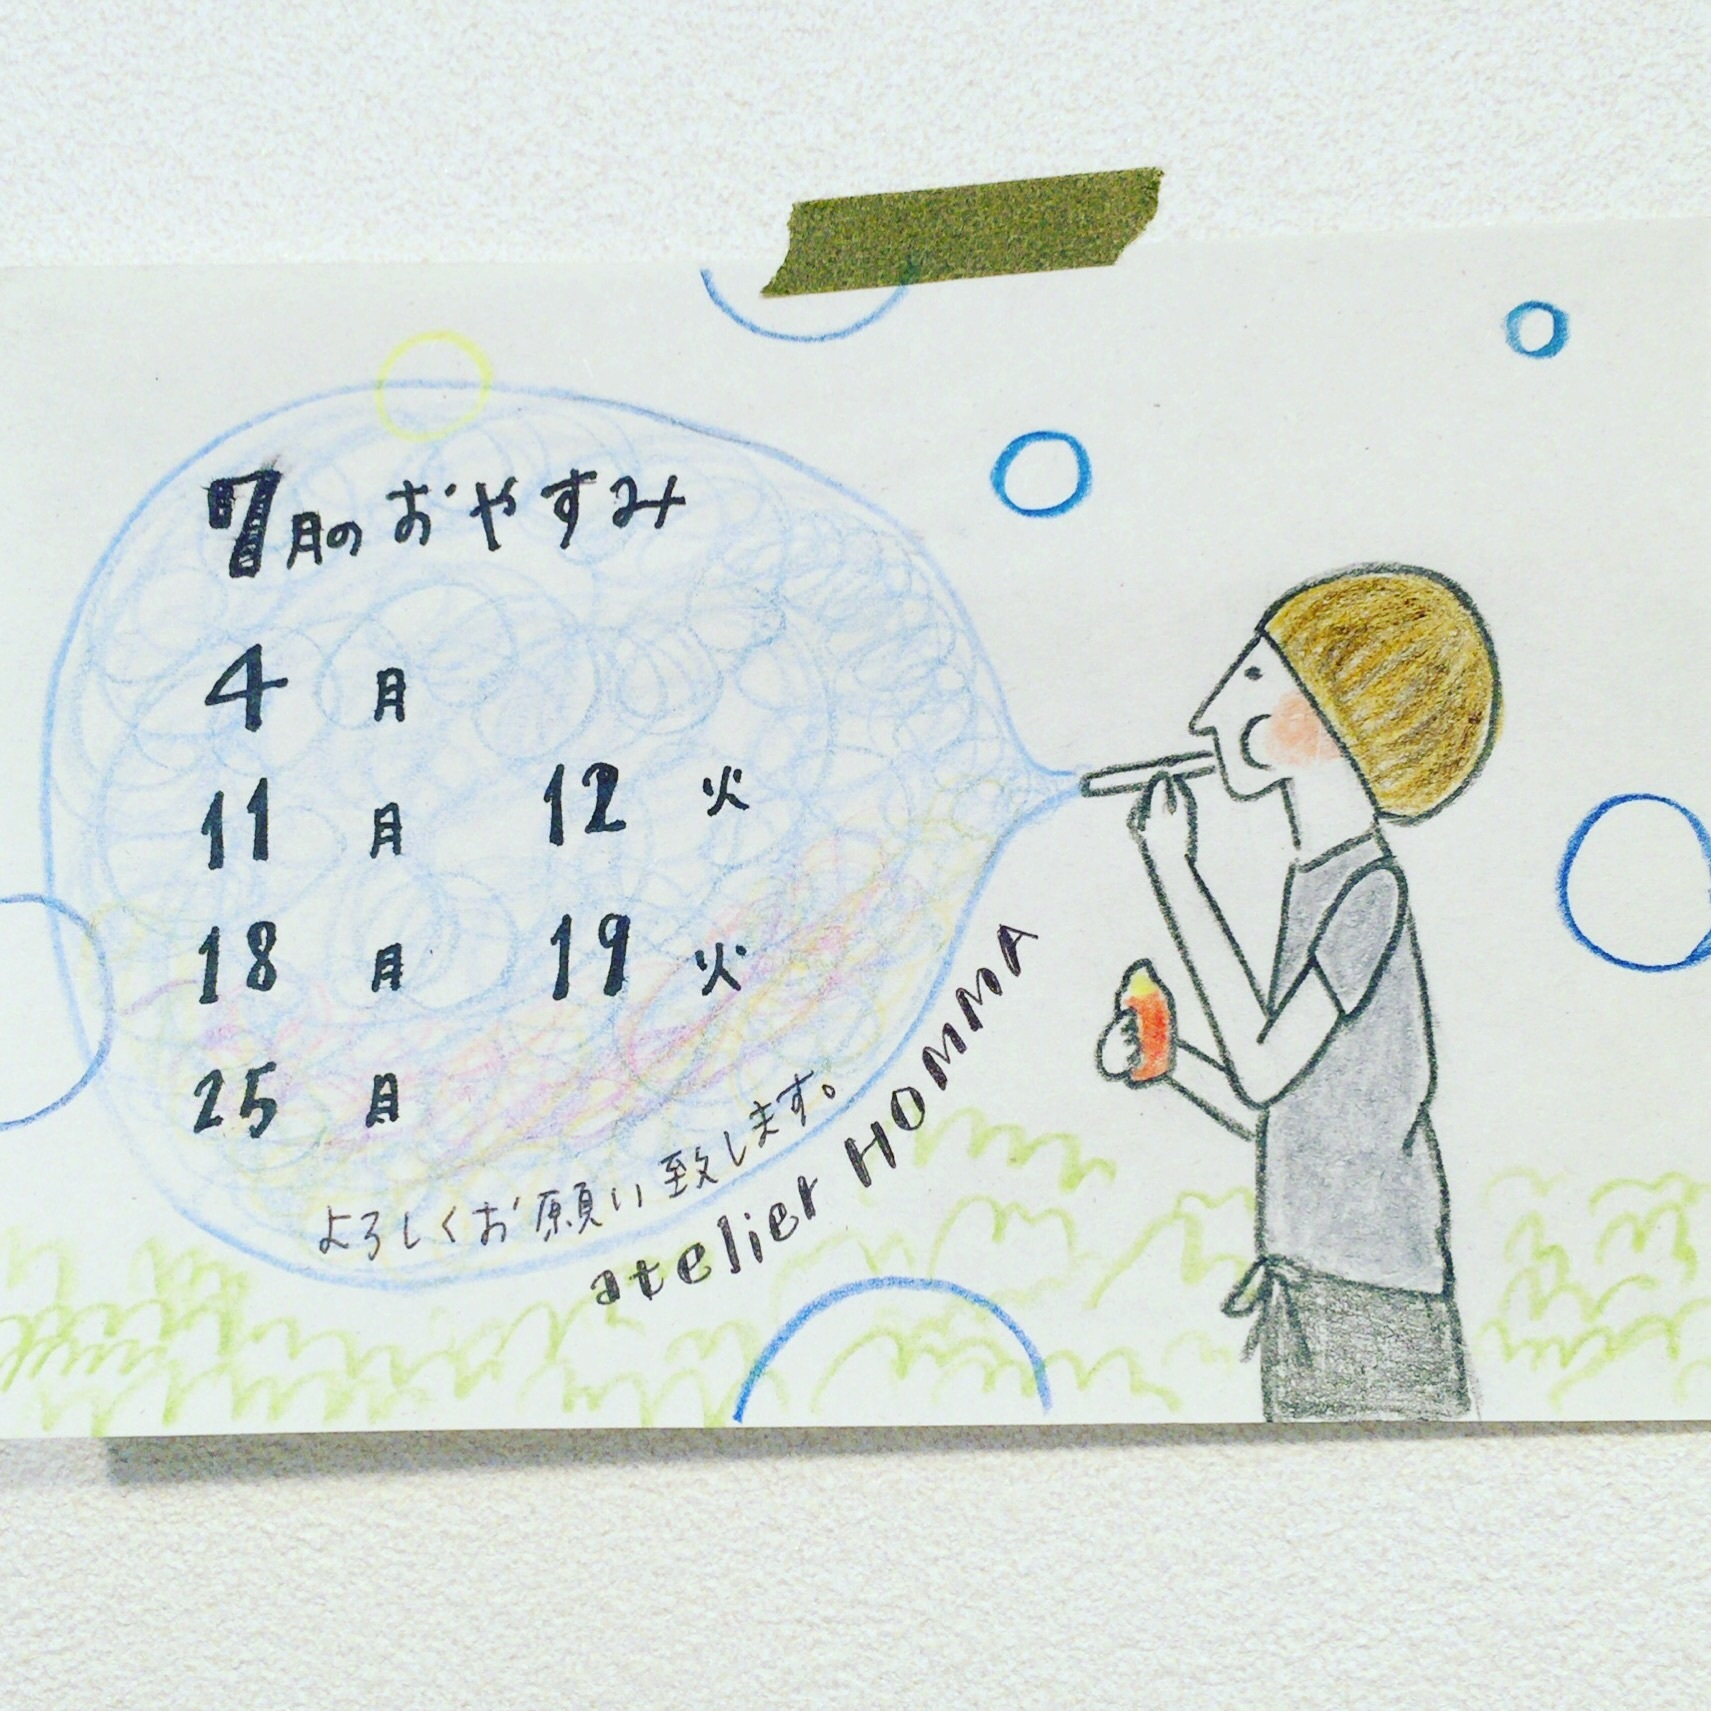 7月のおやすみ
4 月
11 月 12 火
18 月 19 火
25 月
よろしくお願い致します。
atelier HOMMA